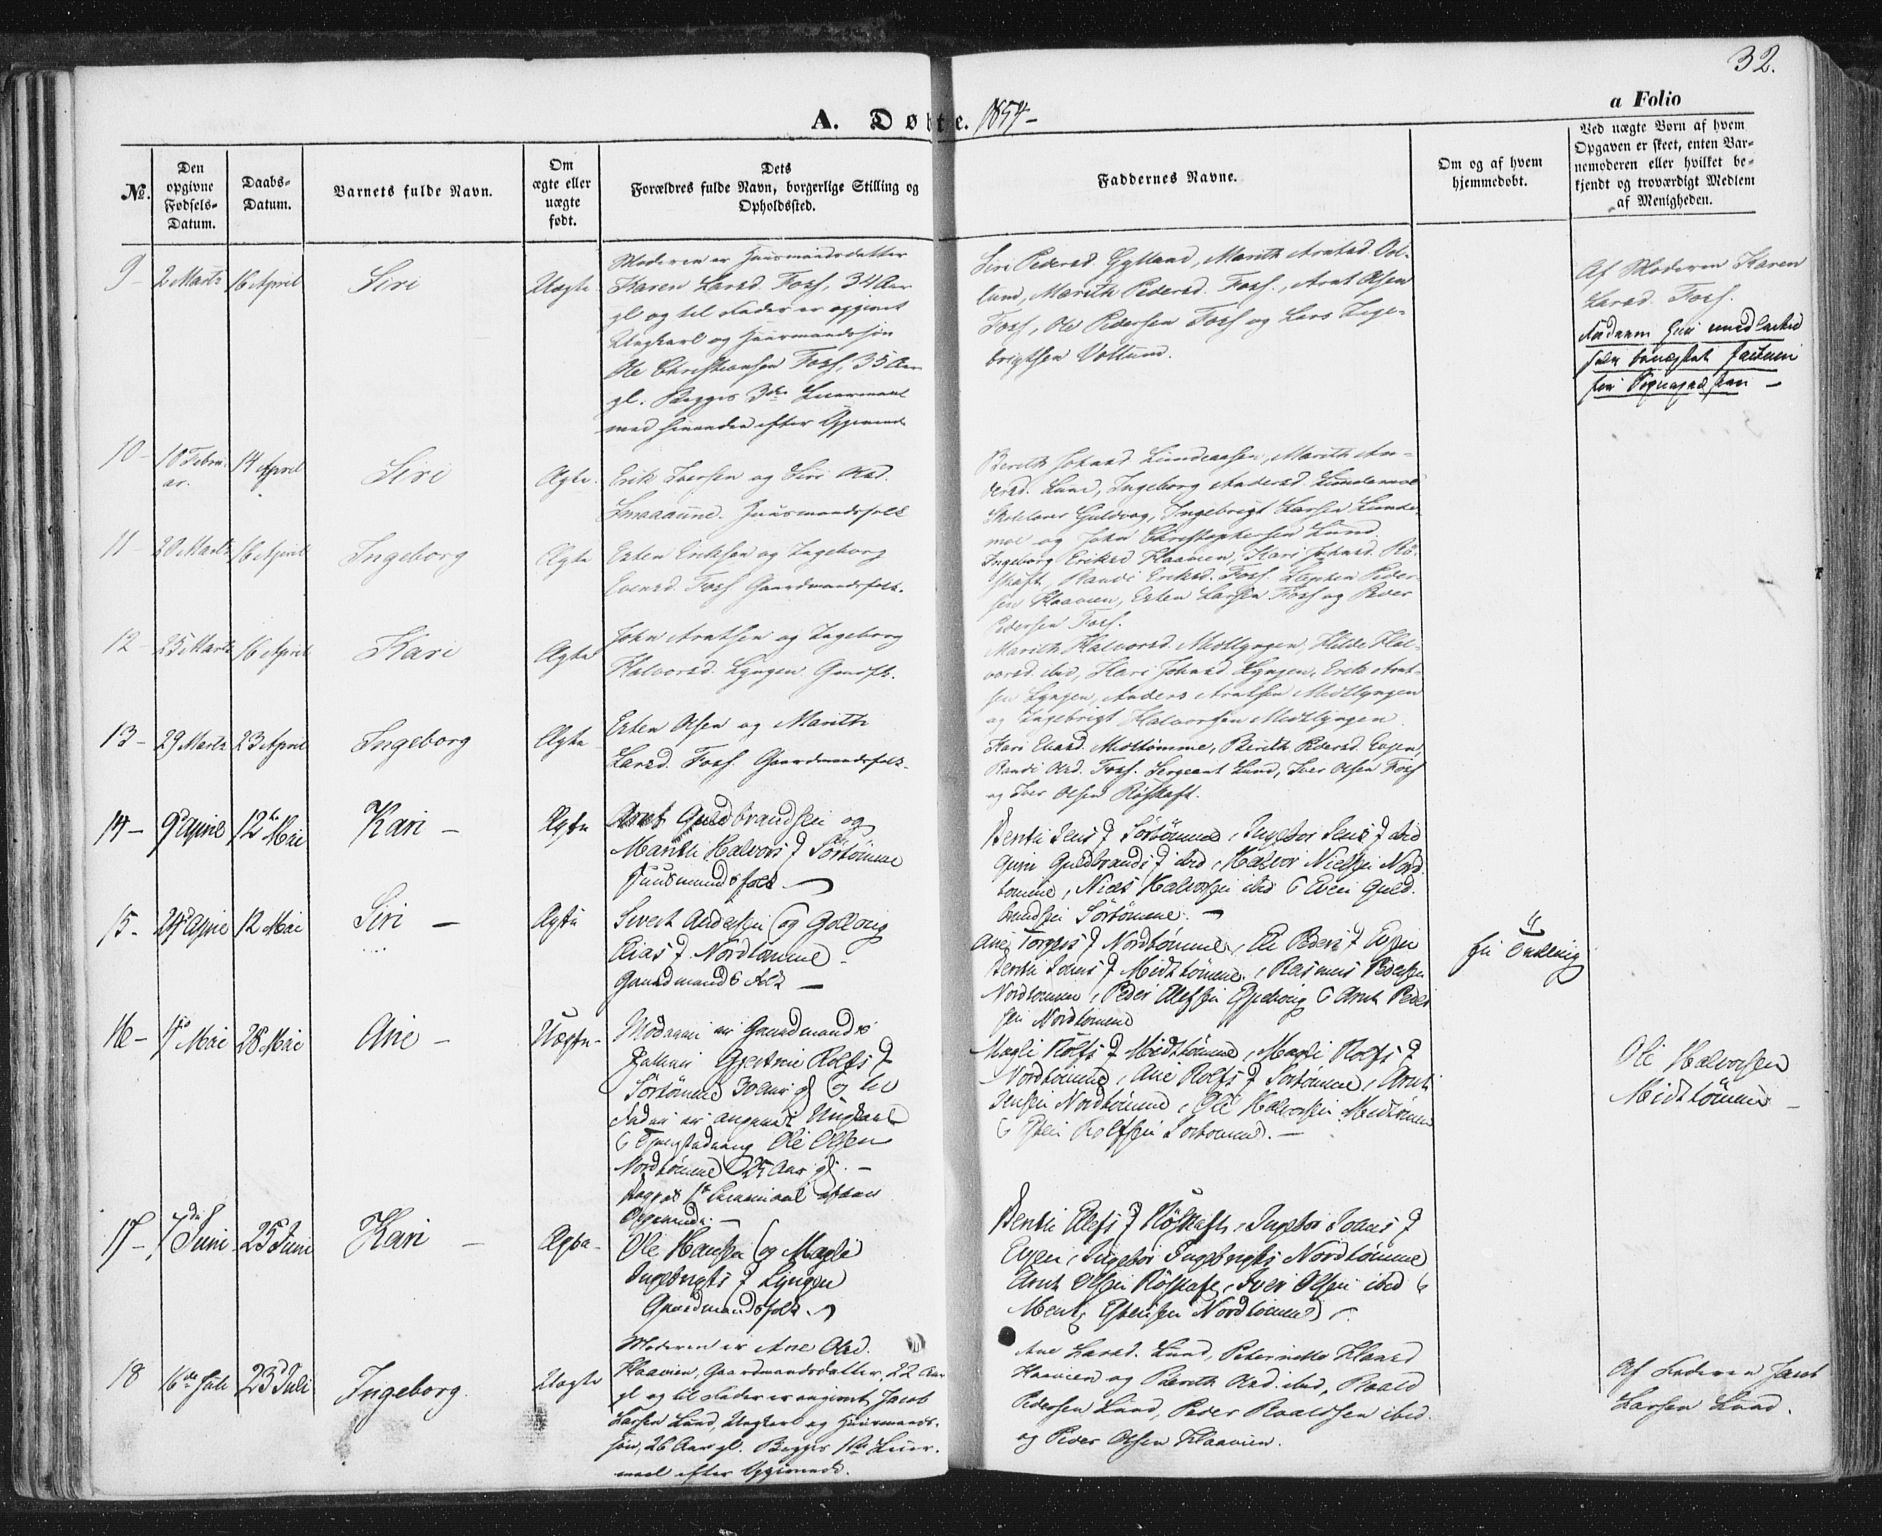 32.
a Folio
A. Døbte. 1854-
№.
Den opgivne Fødsels-Datum.
Daabs-Datum.
Barnets fulde Navn.
Om ægte eller uægte født.
Dets Forældres fulde Navn, borgerlige Stilling og Opholdssted.
Faddernes Navne.
Om og af hvem hjemmedøbt.
Ved uægte Børn af hvem Opgaven er skeet, enten Barnemoderen eller hvilket bekjendt og troværdigt Medlem af Menigheden.
9- 2 Marts 16 April Siri Uægte
Moderen er Huusmandsdatter
Karen Larsd. Foss, 34 Aar
gl og til Fader er opgivet
Ungkarl og Huusmandssøn
Ole Christiansen Foss, 35 Aar
gl. Begges 3die Leiermaal
med hinanden efter Opgivende
Siri Pedersd. Gylland, Marith Arntsd. Vol-
lund, Marith Pedersd. Foss, Arnt Olsen
Foss, Ole Pedersen Foss og Lars Inge-
brigtsen Vollund.
Af Moderen Karen
Larsd. Foss.
10- 10 Febru-
ar. 14 April Siri Ægte.
Erik Iversen og Siri Olsd.
Smaaaune. Huusmandsfolk
Berith Johnsd Lundaasen, Marith An-
dersd. Lund, Ingeborg Andersd. Lundemoe
Skolelærer Guldvog, Ingebrigt Larsen Lunde-
moe og John Christophersen Lund.
11- 20 Marts 16 April Ingeborg Ægte
Esten Eriksen og Ingeborg
Evensd. Foss Gaardmandsfolk.
Ingeborg Eriksd Haavien, Kari Johnsd. Rö-
skaft, Randi Eriksd. Foss, Stephen Peder-
sen Haavien, Esten Larsen Foss og Peder
Pedersen Foss.
12- 25 Marts 16 April Kari Ægte
John Arntsen og Ingeborg
Halvorsd. Lyngen Gaardfk.
Marith Halvorsd. Midtlyngen, Hilde Hal-
vorsd. ibid, Kari Johnsd Lyngen, Erik Arnt-
sen Lyngen, Anders Arntsen Midtlyngen
og Ingebrigt Halvorsen Midtlyngen.
13- 29 Marts 23 April Ingeborg Ægte
Esten Olsen og Marith
Larsd. Foss. Gaardmandsfolk.
Kari Olsd. Midtømme, Berith Pedersd. Evjen,
Randi Olsd. Foss. Sergeant Lund, Iver Olsen Foss
og Iver Olsen Röskaft.
14- 9 April 12te Mai Kari - Ægte
Arnt Guldbrandsen og
Marith Halvors D Sörtömme
Huusmandsfolk -
Jens D Sörtömme, Ingebor Jens D ibid
Guri Guldbrands D ibid, Halvor Nielsen Nord
tömme, Niels Halvorsen ibid & Even Guld-
brandsen Sörtömme. -
15- 24 April 12 Mai Siri - Ægte
Sivert Andersen (og Gollaug
Elias D Nordtömme.
Gaardmandsfolk -
Ane Torgers D Nordtömme, Eli Peders D Evjen
Johns D Midtömme, Rasmus Pedersen
Nordtömme, Peder Olefsen & Arnt Peder
sen Nordtömme
16- 4 Mai 28 Mai Ane - Uægte
Moderen er Gaardmands
Gjertrue Rolfs D
Sörtömme 30 Aar gl og til
Fader er angivet Ungkarl
& Ole Olsen
Nordtömme 25 Aar gl. -
Begges 1te Leiermaal efter
Opgivende. -
Magli Rolfs D Midtömme, Magli Rolfs D
Nordtömme, Ane Rolfs D Sörtömme, Arnt
Jensen Nordtömme, Ole Halvorsen Midtömme
& Esten Rolfsen Sörtömme. -
Ole Halvorsen
Midtömme -
17- 7de Juni 25 Juni Kari - Ægte
Ole Hansen (og Magli
Ingebrigts D Lyngen
Gaardmandsfolk.
Olefs D Röskaft, Ingebor Johns D
Evjen, Ingebor Ingebrigts Nordtömme
Arnt Olsen Röskaft, Iver Olsen ibid &
Estensen Nordtömme.
18 16de Juli 23 Juli Ingeborg. Uægte
Moderen er Ane Olsd.
Haavien, Gaardmandsdatter, 22 Aar
gl og til Fader er angivet Jacob
Larsen Lund, Ungkarl og Huusmands-
søn, 26 Aar gl. Begges 1ste Leier-
maal efter Opgivende.
Ane Larsd. Lund, Peternelle Hansd
Haavien og Berith Olsd. ibid, Roald
Pedersen Lund, Peder Roaldsen ibid
og Peder Olsen Haavien.
Af Faderen Jacob
Larsen Lund.